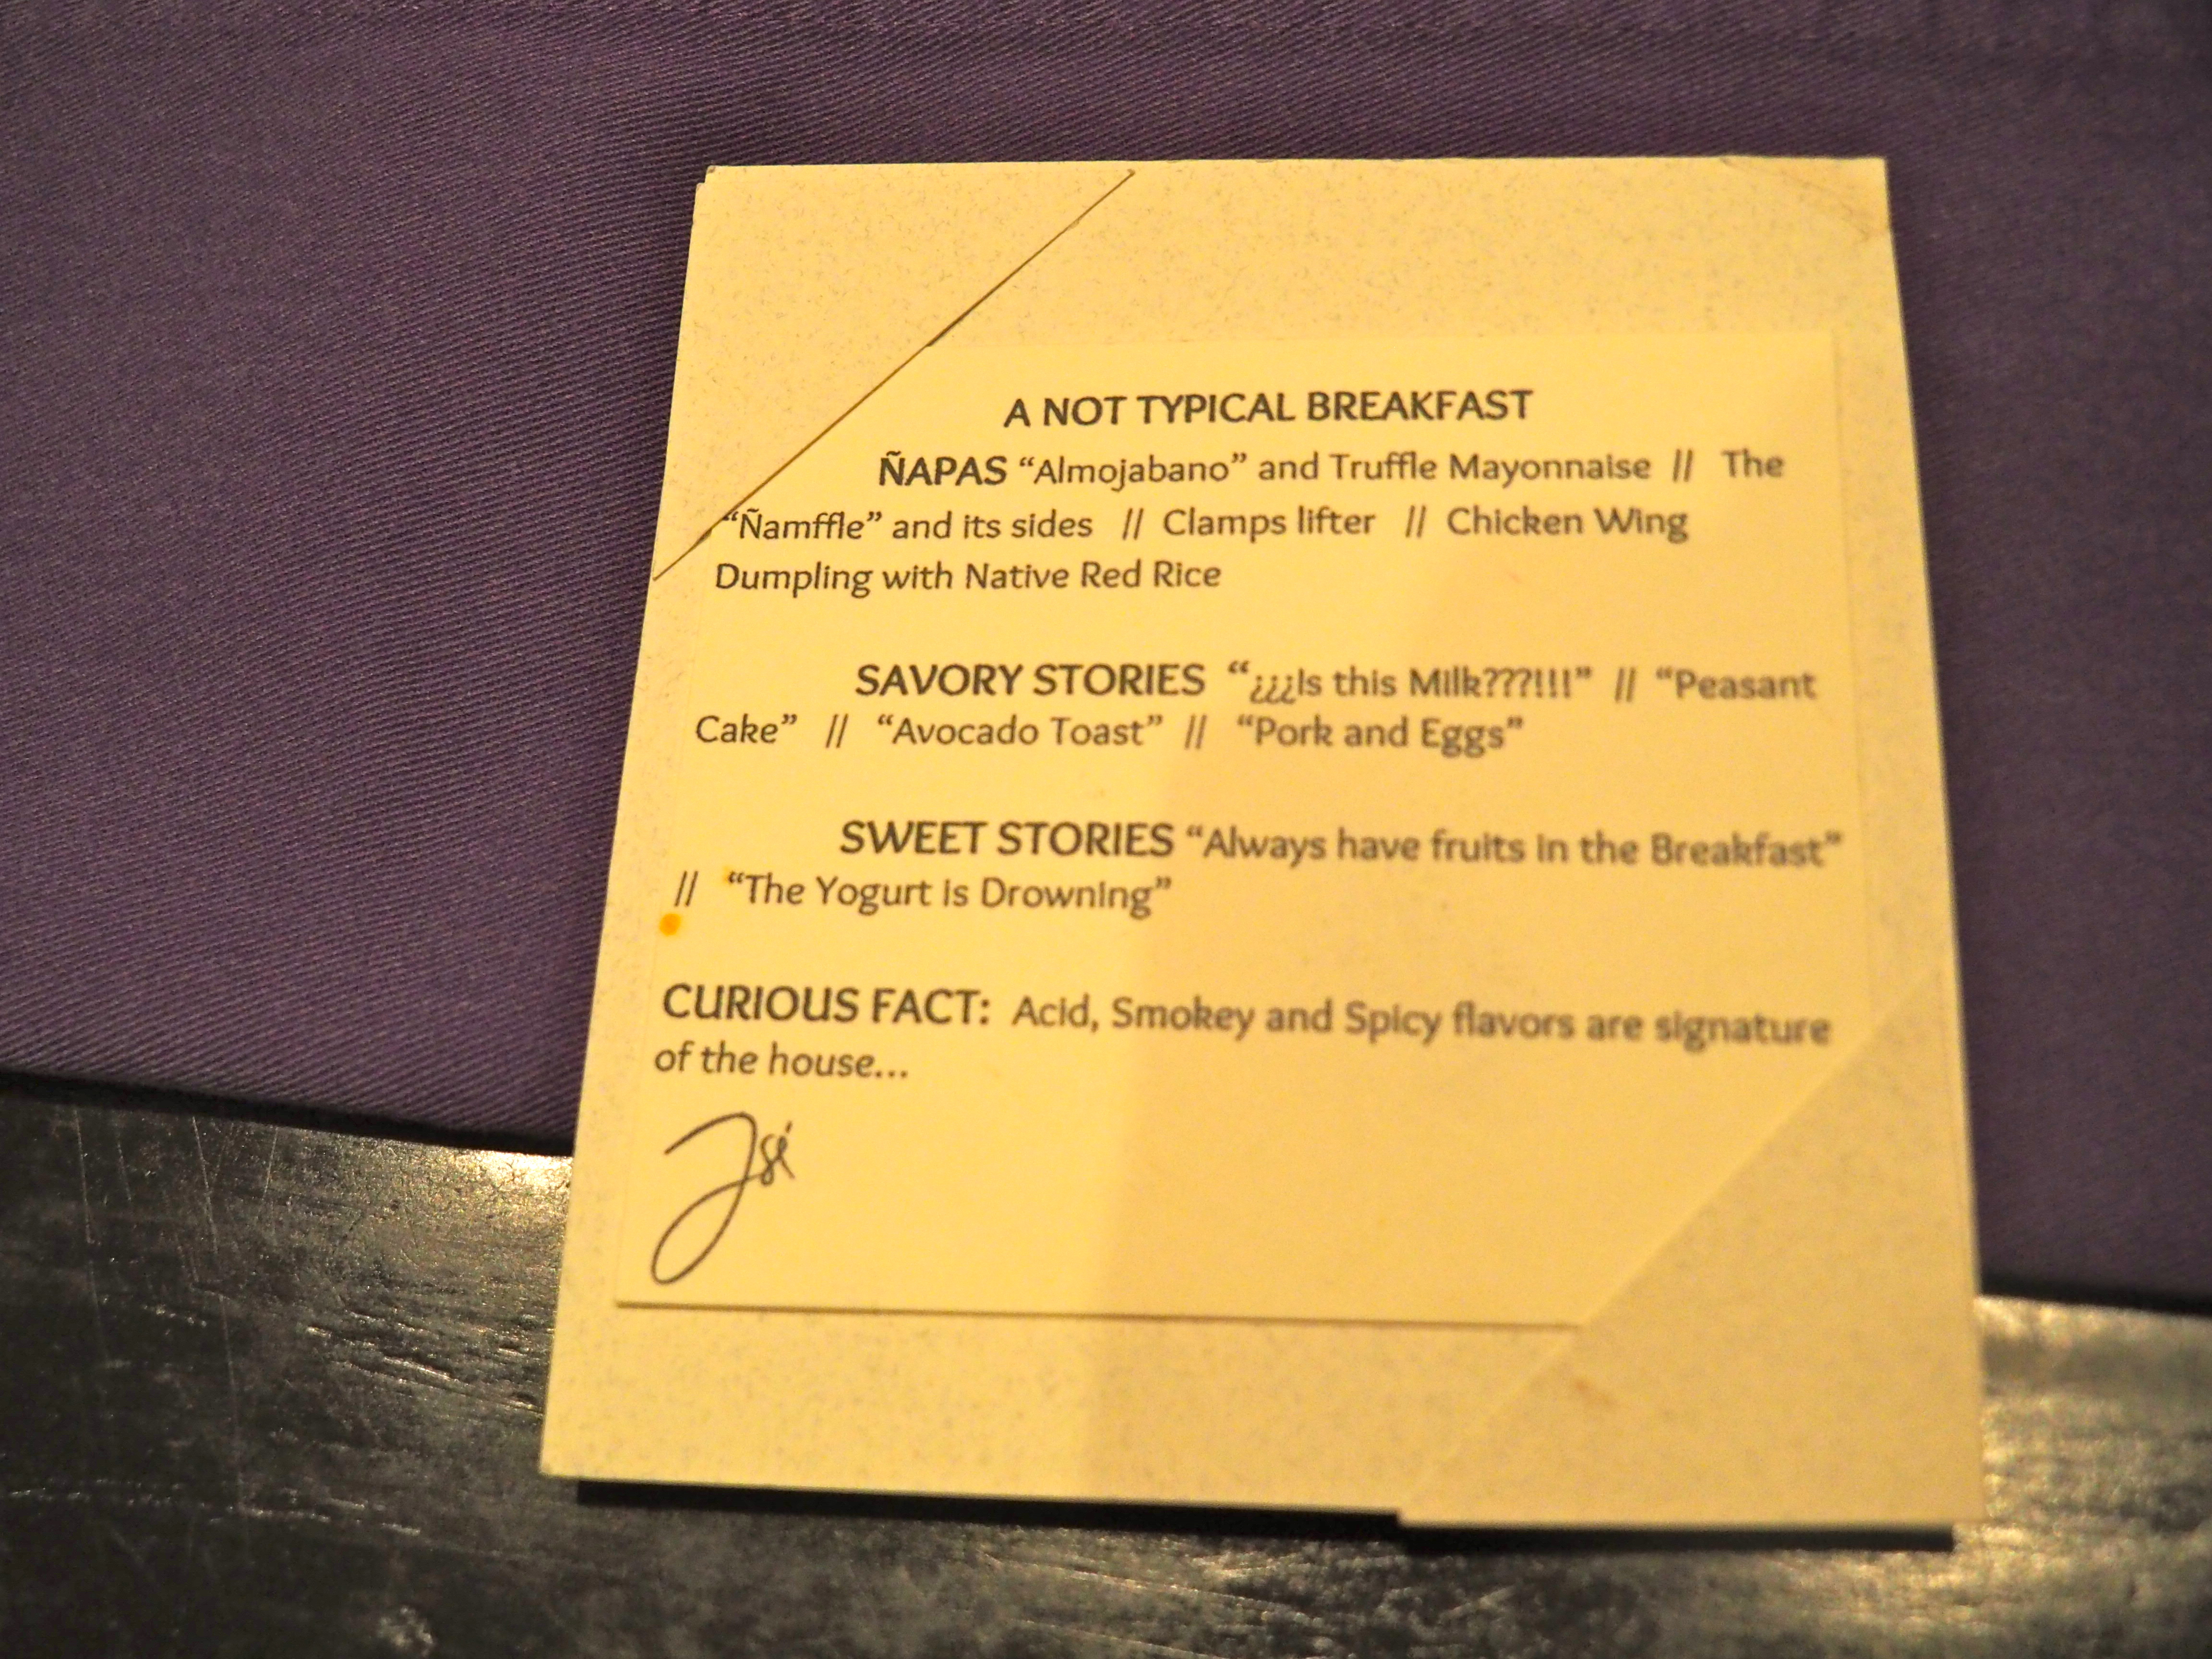 A NOT TYPICAL BREAKFAST
ÑAPAS “Almojabano” and Truffle Mayonnaise // The
“Ñamffle” and its sides // Clamps lifter // Chicken Wing
Dumpling with Native Red Rice
SAVORY STORIES “¿¿¿Is this Milk???!!!” // “Peasant
Cake” // “Avocado Toast” // “Pork and Eggs”
SWEET STORIES “Always have fruits in the Breakfast”
// “The Yogurt is Drowning”
CURIOUS FACT: Acid, Smokey and Spicy flavors are signature
of the house...
Jsé